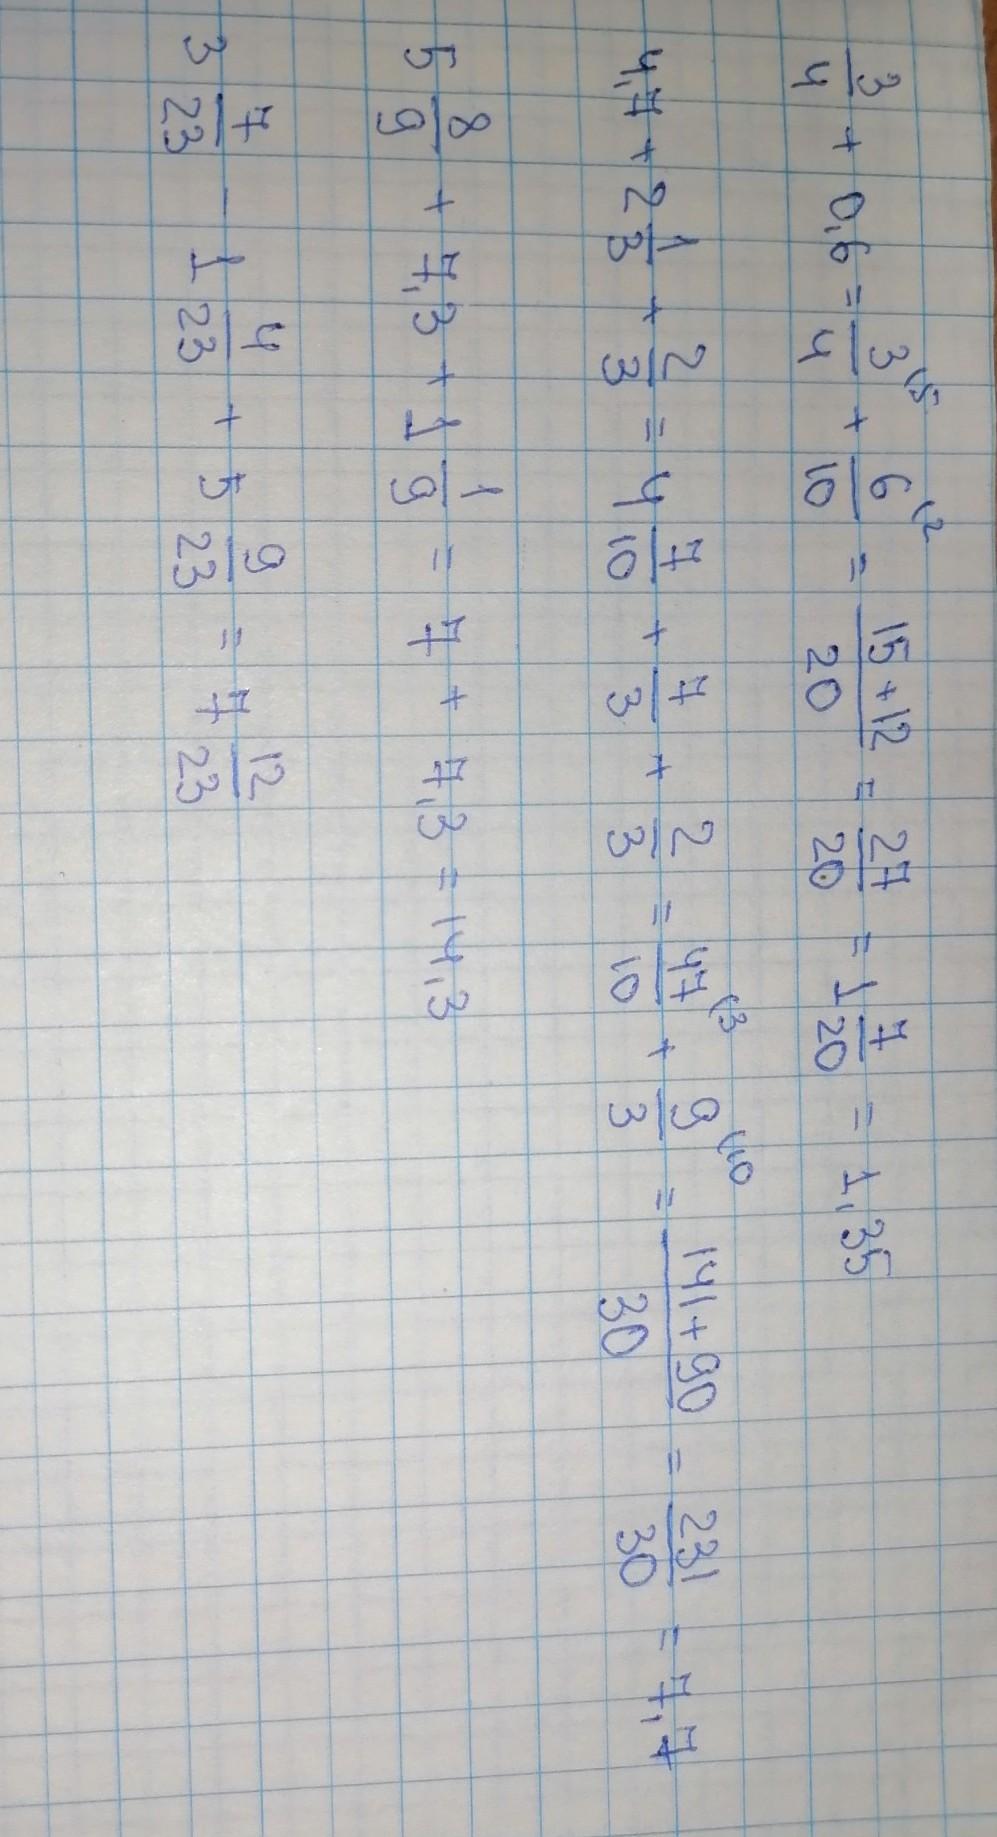 3/4 + 0,6 = 3/4 (5 + 6/10 (2 = 15+12/20 = 27/20 = 1 7/20 = 1,35
4,7 + 2 1/3 + 2/3 = 4 7/10 + 7/3 + 2/3 = 47/10 (3 + 9/3 (10 = 141+90/30 = 231/30 = 7,7
5 8/9 + 7,3 + 1 1/9 = 7 + 7,3 = 14,3
3 7/23 - 1 4/23 + 5 9/23 = 7 12/23